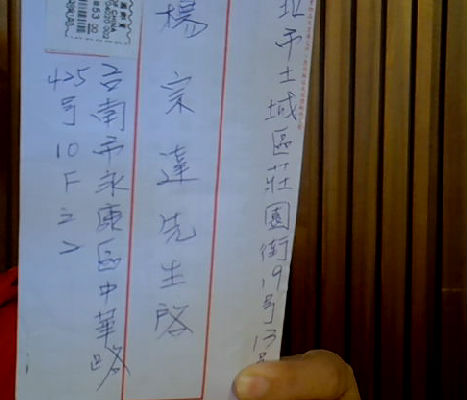 北市土城區莊園街19号13号
楊宗達先生啓
台南市永康區中華路
425号10F之2